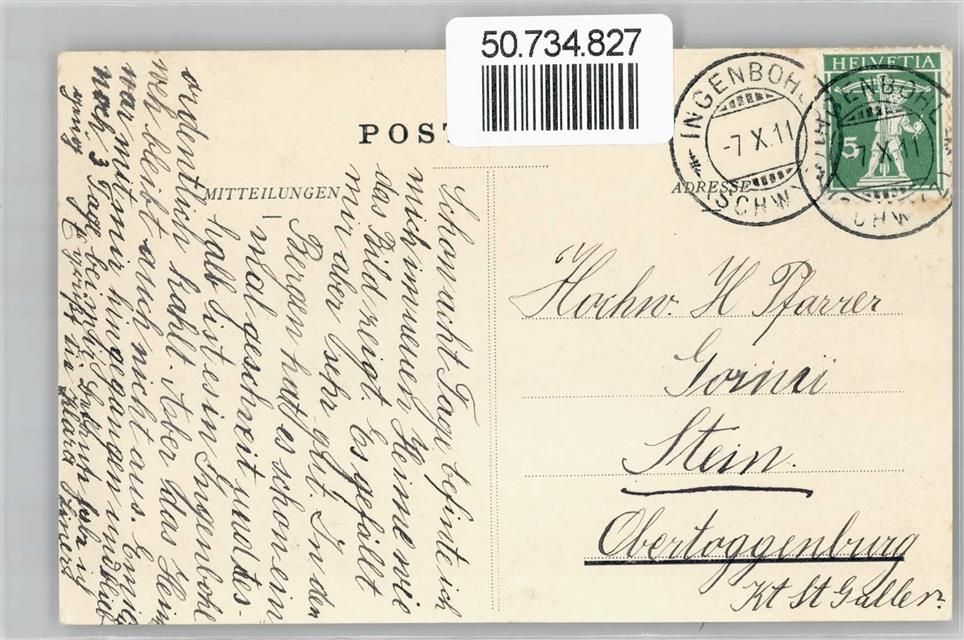 50.734.827
POST
MITTEILUNGEN
ADRESSE
INGENBOHL
-7.X.11
(SCHWYZ)
HELVETIA
5
INGENBOHL
-7.X.11
(SCHWYZ)
Schon acht Tage befinde ich
mich im neuen Heime wie
das Bild zeigt. Es gefällt
mir aber sehr gut. In den
Bergen hat es schon ein
mal geschneit und des-
halb ist es in Ingenbohl
ordentlich kalt. Aber das Heim
weh bleibt auch nicht aus. Emia
war mit mir hingegangen und bleibt
noch 3 Tage bei mir.
Hochw. H Pfarrer
Gornei
Stein.
Obertoggenburg
Kt St Gallen